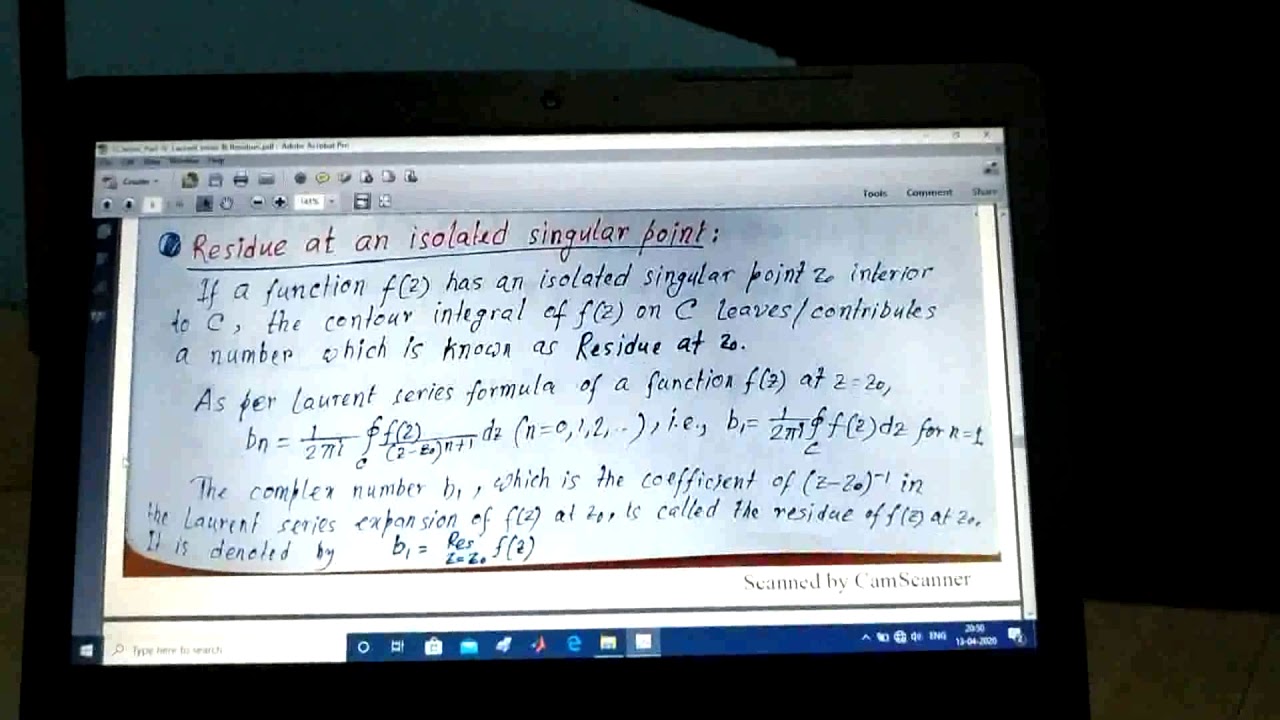 Laurent series & Residues.pdf - Adobe Acrobat Pro
Help
Create
Tools Comment Share
141%
Residue at an isolated singular point:
If a function f(z) has an isolated singular point z₀ interior
to C, the contour integral of f(z) on C leaves/contributes
a number which is known as Residue at z₀.
As per Laurent series formula of a function f(z) at z=z₀,
bn = 1/2πi ∮C f(z)/(z-z₀)n+1 dz (n=0,1,2,..), i.e., b₁ = 1/2πi ∮C f(z)dz for n=1
The complex number b₁, which is the coefficient of (z-z₀)⁻¹ in
the Laurent series expansion of f(z) at z₀, is called the residue of f(z) at z₀.
It is denoted by b₁ = Res z=z₀ f(z)
Scanned by CamScanner
Type here to search
ENG
20:50
13-04-2020